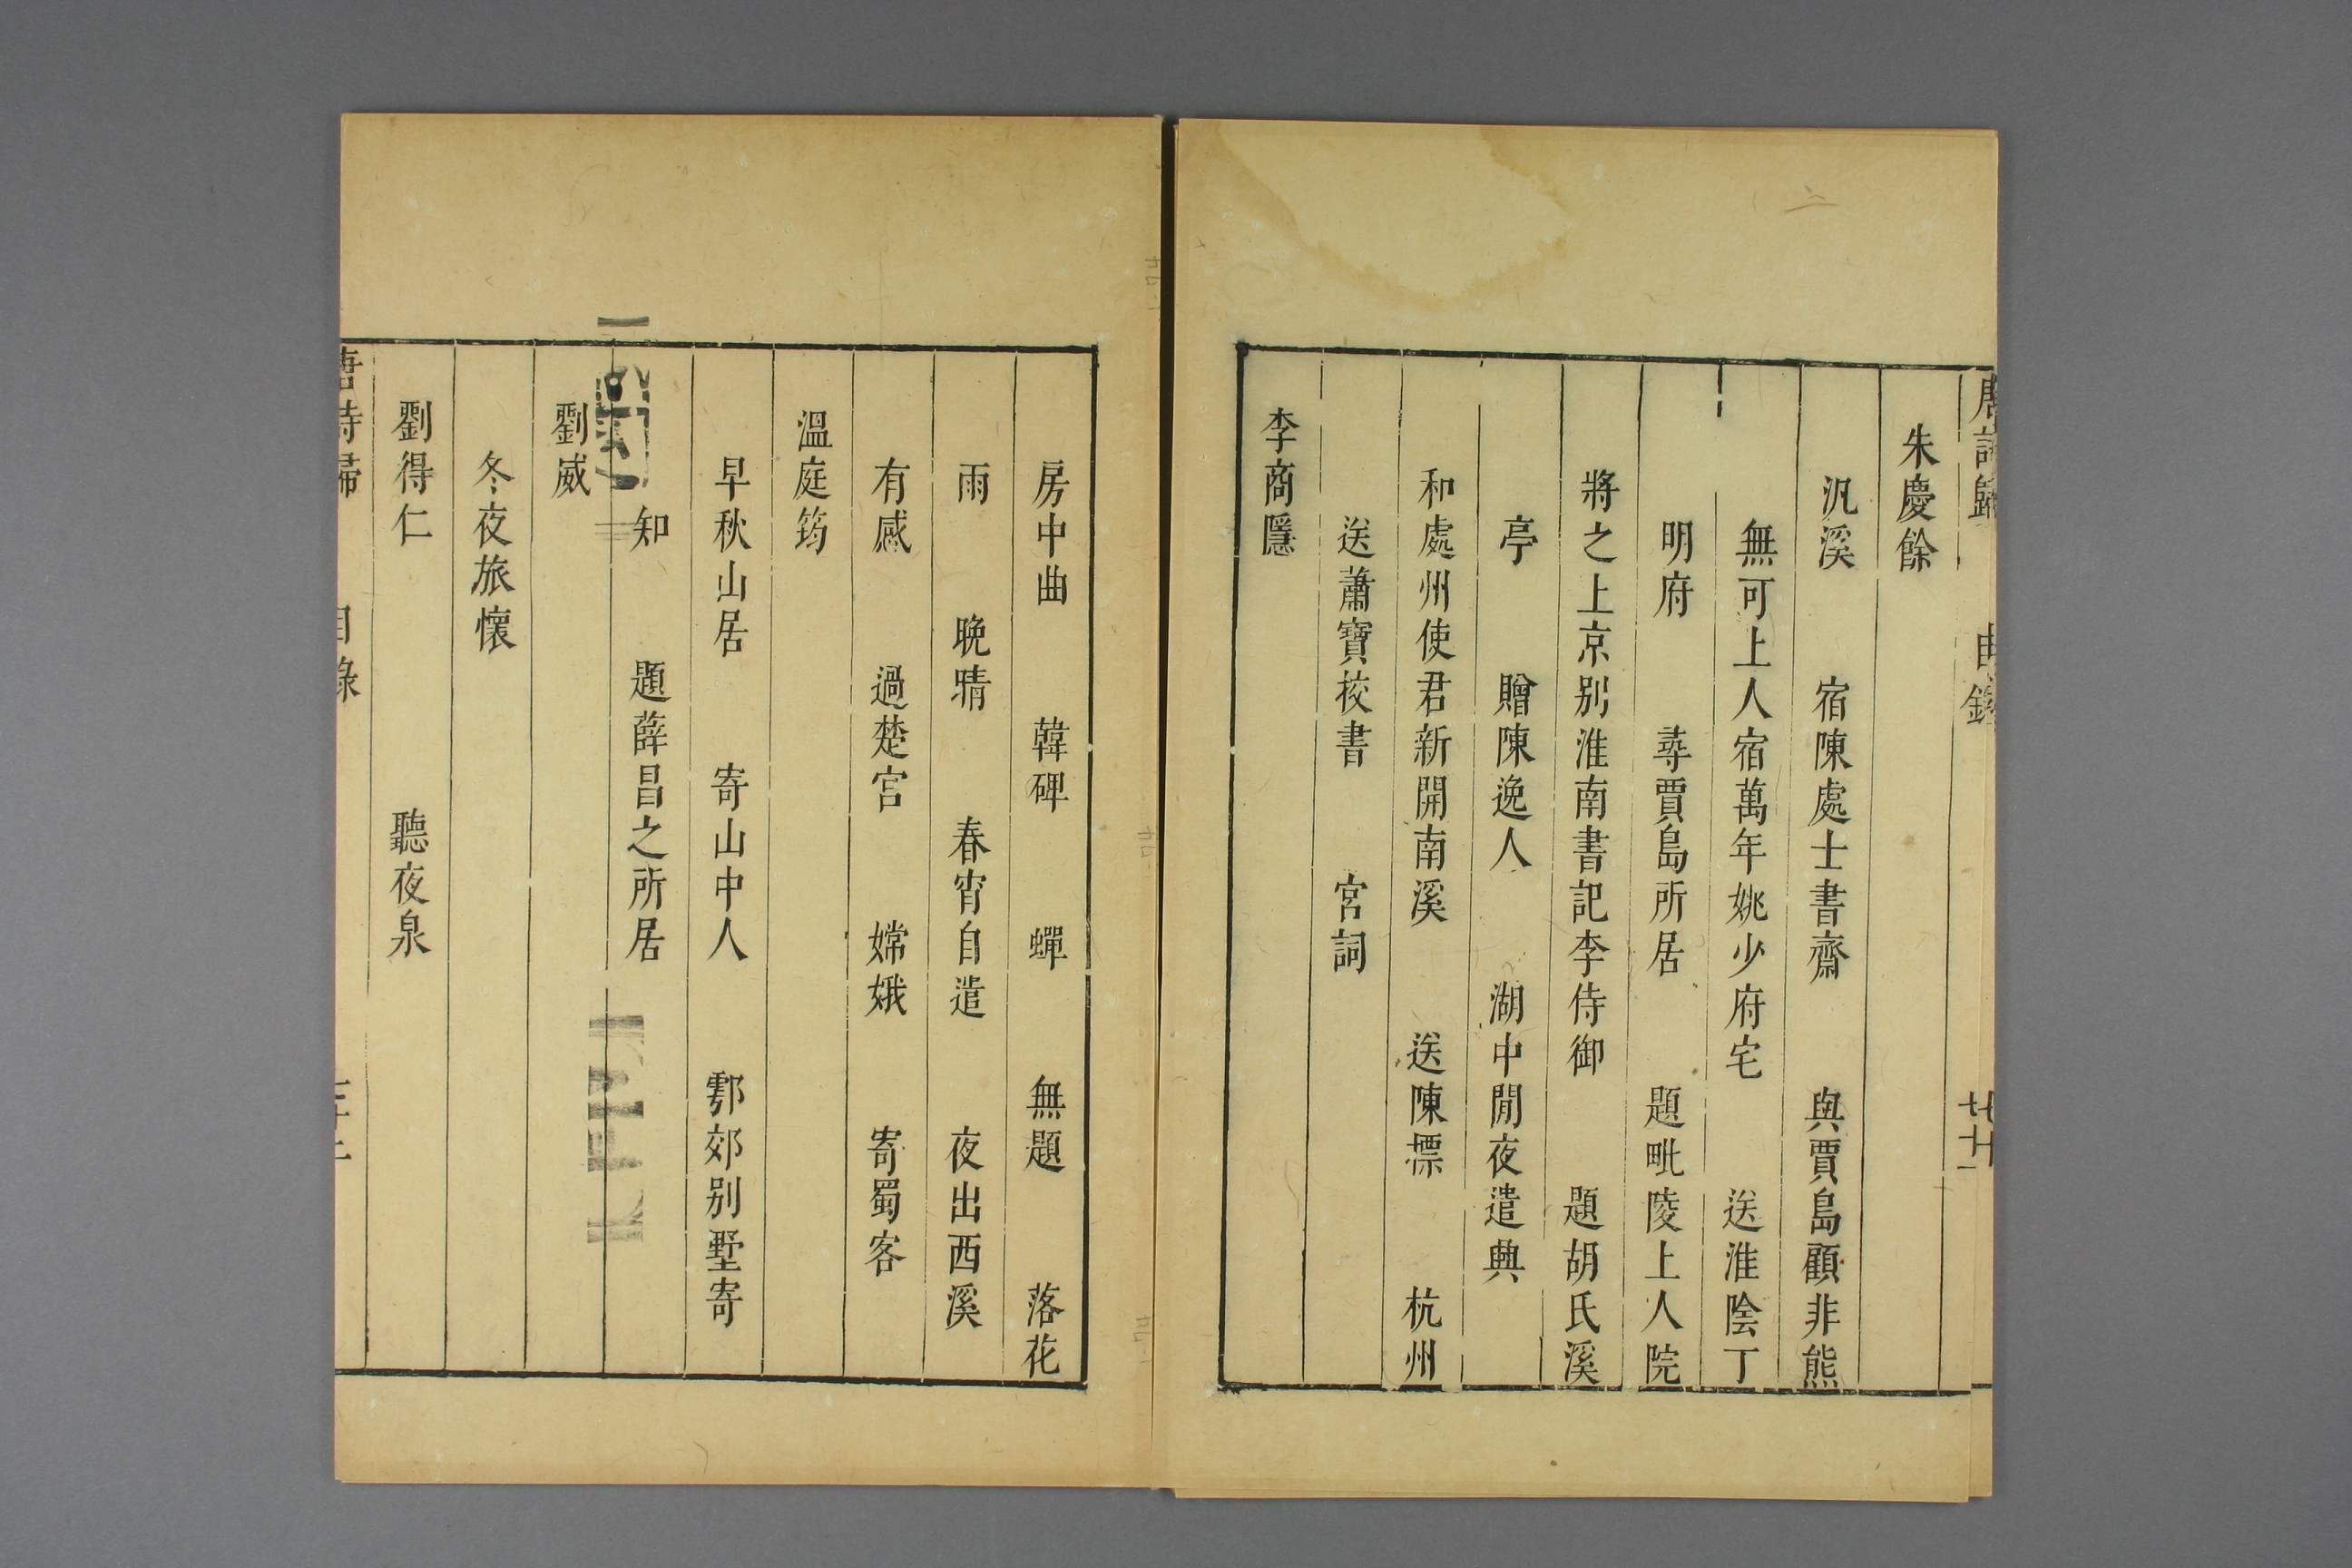 朱慶餘
汎溪　宿陳處士書齋　與賈島顧非熊
無可上人宿萬年姚少府宅　送淮陰丁
明府　尋賈島所居　題毗陵上人院
將之上京别淮南書記李侍御　題胡氏溪
亭　贈陳逸人　湖中閒夜遣興
和處州使君新開南溪　送陳摽　杭州
送蕭寶挍書　宮詞
李商隱
房中曲　韓碑　蟬　無題　落花
雨　晚晴　春宵自遣　夜出西溪
有感　過楚宮　嫦娥　寄蜀客
溫庭筠
早秋山居　寄山中人　鄠郊别墅寄
知　題薛昌之所居
劉威
冬夜旅懷
劉得仁　聽夜泉
唐詩歸　目錄